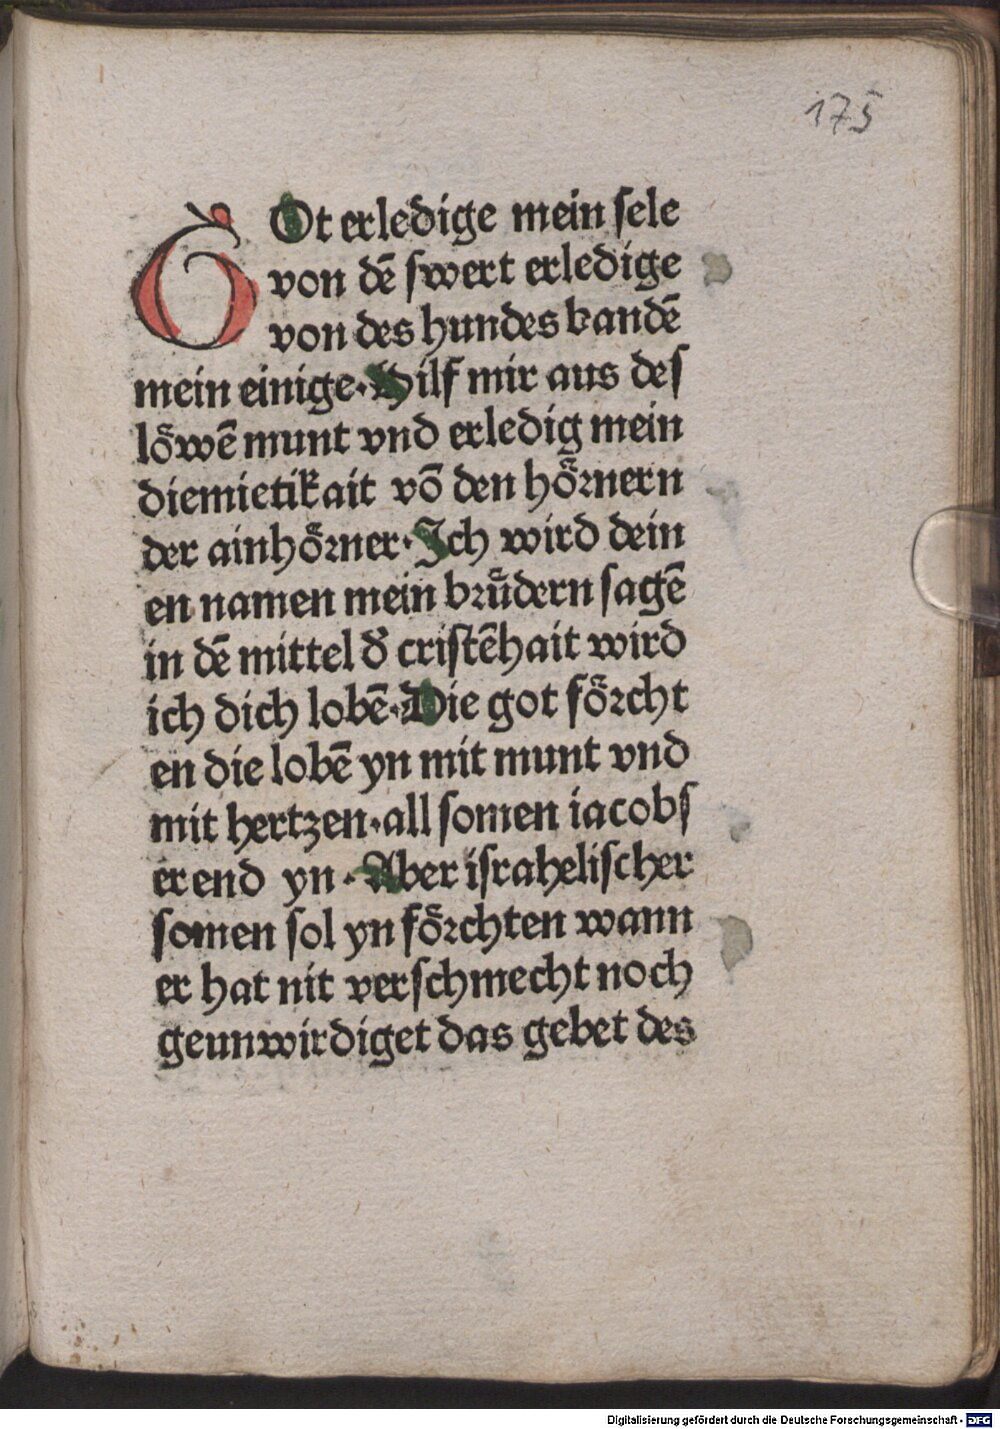 175
GOt erledige mein ſele
von dē ſwert erledige
von des hundes bandē
mein einige·Hilf mir aus deſ
loͤwē munt vnd erledig mein
diemietikait vō den hoͤꝛnern
der ainhoͤꝛner·Ich wird dein
en namen mein bꝛuͤdern ſagē
in dē mittel dˀ criſtēhait wird
ich dich lobē·Die got foͤꝛcht
en die lobē yn mit munt vnd
mit hertzen·all ſomen iacobſ
erend yn·Aber iſraheliſcher
ſomen ſol yn foͤꝛchten wann
er hat nit verſchmecht noch
geunwirdiget das gebet des
Digitalisierung gefördert durch die Deutsche Forschungsgemeinschaft - DFG